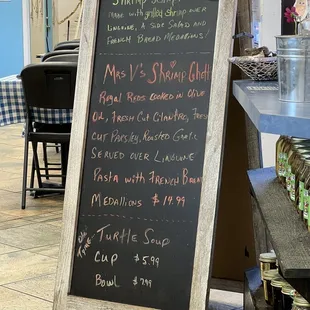 Shrimp Scampi
made with grilled shrimp over
linguine, a side salad and
french bread medallions!
Mrs V's Shrimp Ghetti
Regal Reds cooked in Olive
Oil, Fresh Cut Cilantro, Fresh
Cut Parsley, Roasted Garlic
Served over Linguine
Pasta with French Bread
Medallions $19.99
Turtle Soup
Cup $5.99
Bowl $7.99